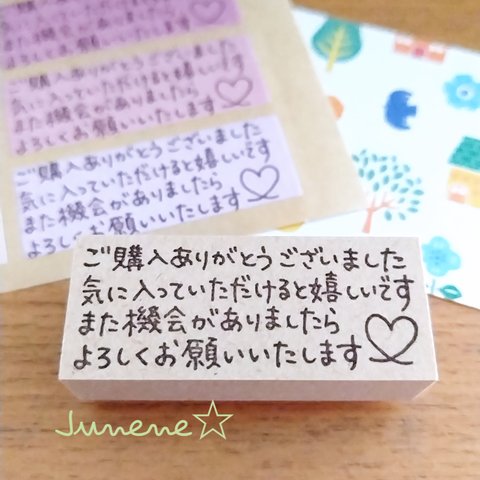 また機会がありましたら
よろしくお願いいたします
ご購入ありがとうございました
気に入っていただけると嬉しいです
また機会がありましたら
よろしくお願いいたします
ご購入ありがとうございました
気に入っていただけると嬉しいです
また機会がありましたら
よろしくお願いいたします
ご購入ありがとうございました
気に入っていただけると嬉しいです
また機会がありましたら
よろしくお願いいたします
Junene☆